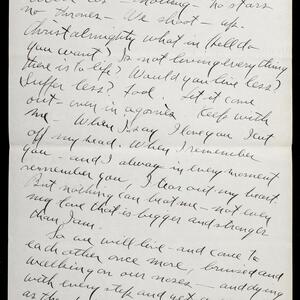 no thrones — We shoot — up.
Christ almighty what in hell do
you want? Is not loving everything
there is to life? Would you live less?
Suffer less? fool. Let it come
out — even in agonies Keep with
me — When I say I love you I cut
off my head. When I remember
you — and I always in every moment
remember you, I tear out my heart.
But nothing can beat me — not even
my love that is bigger and stronger
than I am.
So we will live — and come to
each other once more, bruised and
walking on our noses — and dying
with every step and yet